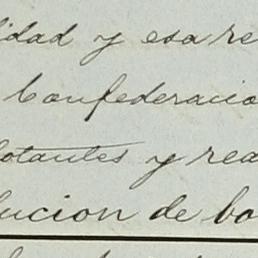 lidad y esa re
Confederacio
lotantes y rea
lucion de bo